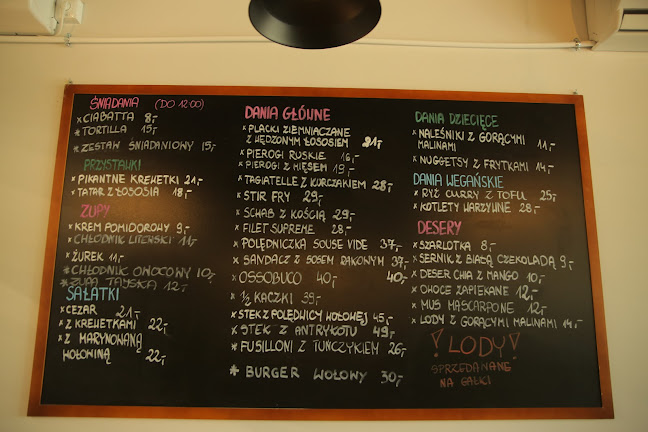 ŚNIADANIA (DO 12:00)
× CIABATTA 8,-
* TORTILLA 15,-
* ZESTAW ŚNIADANIOWY 15,-
PRZYSTAWKI
× PIKANTNE KREWETKI 21,-
× TATAR Z ŁOSOSIA 18,-
ZUPY
× KREM POMIDOROWY 9,-
× CHŁODNIK LITEWSKI 11,-
× ŻUREK 11,-
* CHŁODNIK OWOCOWY 10,-
* ZUPA TAJSKA 12,-
SAŁATKI
× CEZAR 21,-
× Z KREWETKAMI 22,-
× Z MARYNOWANĄ
WOŁOWINĄ 22,-
DANIA GŁÓWNE
× PLACKI ZIEMNIACZANE
Z WĘDZONYM ŁOSOSIEM 21,-
× PIEROGI RUSKIE 16,-
× PIEROGI Z MIĘSEM 19,-
× TAGIATELLE Z KURCZAKIEM 28,-
× STIR FRY 29,-
× SCHAB Z KOŚCIĄ 29,-
× FILET SUPREME 28,-
× POLĘDNICZKA SOUSE VIDE 37,-
× SANDACZ Z SOSEM RAKOWYM 37,-
× OSSOBUCO 40,- 40,-
× 1/2 KACZKI 39,-
× STEK Z POLĘDWICY WOŁOWEJ 45,-
× STEK Z ANTRYKOTU 49,-
* FUSILLONI Z TUŃCZYKIEM 26,-
* BURGER WOŁOWY 30,-
DANIA DZIECIĘCE
× NALEŚNIKI Z GORĄCYMI
MALINAMI 11,-
× NUGGETSY Z FRYTKAMI 14,-
DANIA WEGAŃSKIE
× RYŻ CURRY Z TOFU 25,-
× KOTLETY WARZYWNE 28,-
DESERY
× SZARLOTKA 8,-
× SERNIK Z BIAŁĄ CZEKOLADĄ 9,-
× DESER CHIA Z MANGO 10,-
× OWOCE ZAPIEKANE 12,-
× MUS MASCARPONE 12,-
× LODY Z GORĄCYMI MALINAMI 14,-
! LODY !
SPRZEDAWANE
NA GAŁKI